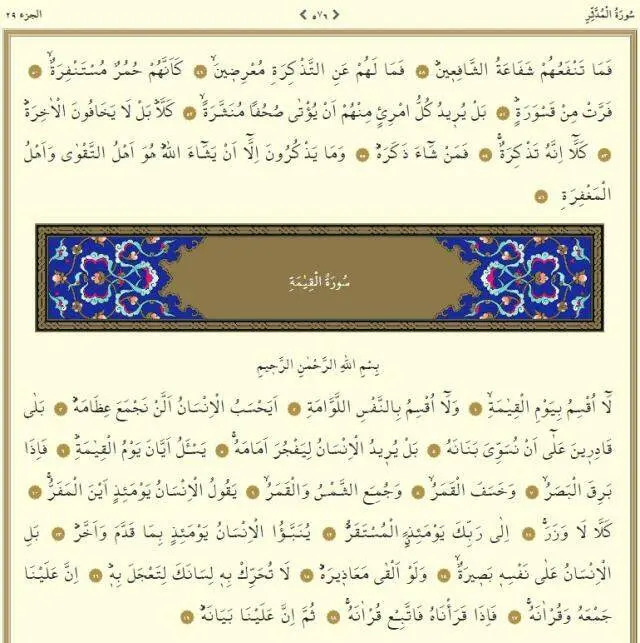 سُورَةُ الْمُدَّثِّرِ ٥٧٦ الجزء ٢٩
فَمَا تَنْفَعُهُمْ شَفَاعَةُ الشَّافِعٖينَۜ ٤٨ فَمَا لَهُمْ عَنِ التَّذْكِرَةِ مُعْرِضٖينَۙ ٤٩ كَاَنَّهُمْ حُمُرٌ مُسْتَنْفِرَةٌۙ ٥٠
فَرَّتْ مِنْ قَسْوَرَةٍۜ ٥١ بَلْ يُرٖيدُ كُلُّ امْرِئٍ مِنْهُمْ اَنْ يُؤْتٰى صُحُفًا مُنَشَّرَةًۙ ٥٢ كَلَّاۜ بَلْ لَا يَخَافُونَ الْاٰخِرَةَۜ
٥٣ كَلَّٓا اِنَّهُ تَذْكِرَةٌۚ ٥٤ فَمَنْ شَٓاءَ ذَكَرَهُۜ ٥٥ وَمَا يَذْكُرُونَ اِلَّٓا اَنْ يَشَٓاءَ اللّٰهُۜ هُوَ اَهْلُ التَّقْوٰى وَاَهْلُ
الْمَغْفِرَةِ ٥٦
سُورَةُ الْقِيٰمَةِ
بِسْمِ اللّٰهِ الرَّحْمٰنِ الرَّحٖيمِ
لَٓا اُقْسِمُ بِيَوْمِ الْقِيٰمَةِۙ ١ وَلَٓا اُقْسِمُ بِالنَّفْسِ اللَّوَّامَةِ ٢ اَيَحْسَبُ الْاِنْسَانُ اَلَّنْ نَجْمَعَ عِظَامَهُۜ ٣ بَلٰى
قَادِرٖينَ عَلٰٓى اَنْ نُسَوِّىَ بَنَانَهُ ٤ بَلْ يُرٖيدُ الْاِنْسَانُ لِيَفْجُرَ اَمَامَهُۚ ٥ يَسْـَٔلُ اَيَّانَ يَوْمُ الْقِيٰمَةِۜ ٦ فَاِذَا
بَرِقَ الْبَصَرُۙ ٧ وَخَسَفَ الْقَمَرُۙ ٨ وَجُمِعَ الشَّمْسُ وَالْقَمَرُۙ ٩ يَقُولُ الْاِنْسَانُ يَوْمَئِذٍ اَيْنَ الْمَفَرُّۚ ١٠
كَلَّا لَا وَزَرَۜ ١١ اِلٰى رَبِّكَ يَوْمَئِذٍۨ الْمُسْتَقَرُّۜ ١٢ يُنَبَّؤُا الْاِنْسَانُ يَوْمَئِذٍ بِمَا قَدَّمَ وَاَخَّرَۜ ١٣ بَلِ
الْاِنْسَانُ عَلٰى نَفْسِهٖ بَصٖيرَةٌۙ ١٤ وَلَوْ اَلْقٰى مَعَاذٖيرَهُۜ ١٥ لَا تُحَرِّكْ بِهٖ لِسَانَكَ لِتَعْجَلَ بِهٖۜ ١٦ اِنَّ عَلَيْنَا
جَمْعَهُ وَقُرْاٰنَهُۚ ١٧ فَاِذَا قَرَأْنَاهُ فَاتَّبِعْ قُرْاٰنَهُۚ ١٨ ثُمَّ اِنَّ عَلَيْنَا بَيَانَهُۜ ١٩